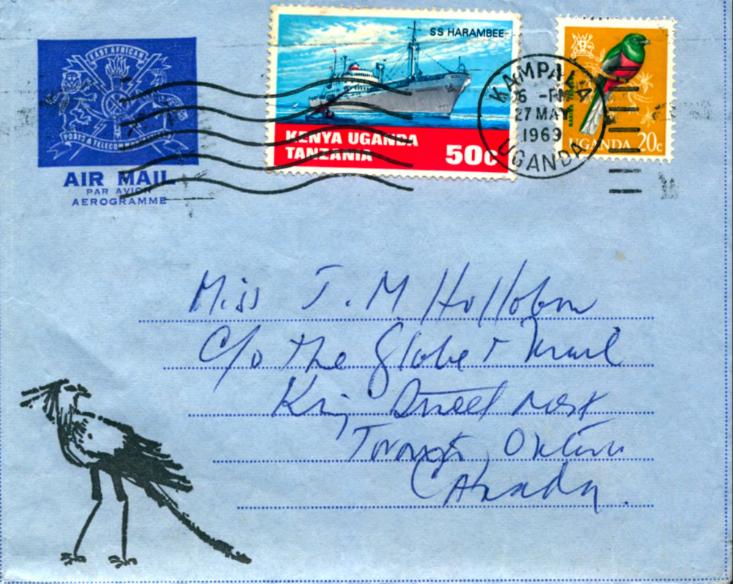 EAST AFRICAN
POSTS & TELECOMMUNICATIONS
AIR MAIL
PAR AVION
AEROGRAMME
SS HARAMBEE
KENYA UGANDA
TANZANIA
50c
KAMPALA
6 - PM
27 MAY
1969
UGANDA
UGANDA 20c
Miss J. M. Hollobon
c/o The Globe & Mail
King Street West
Toronto, Ontario
Canada.